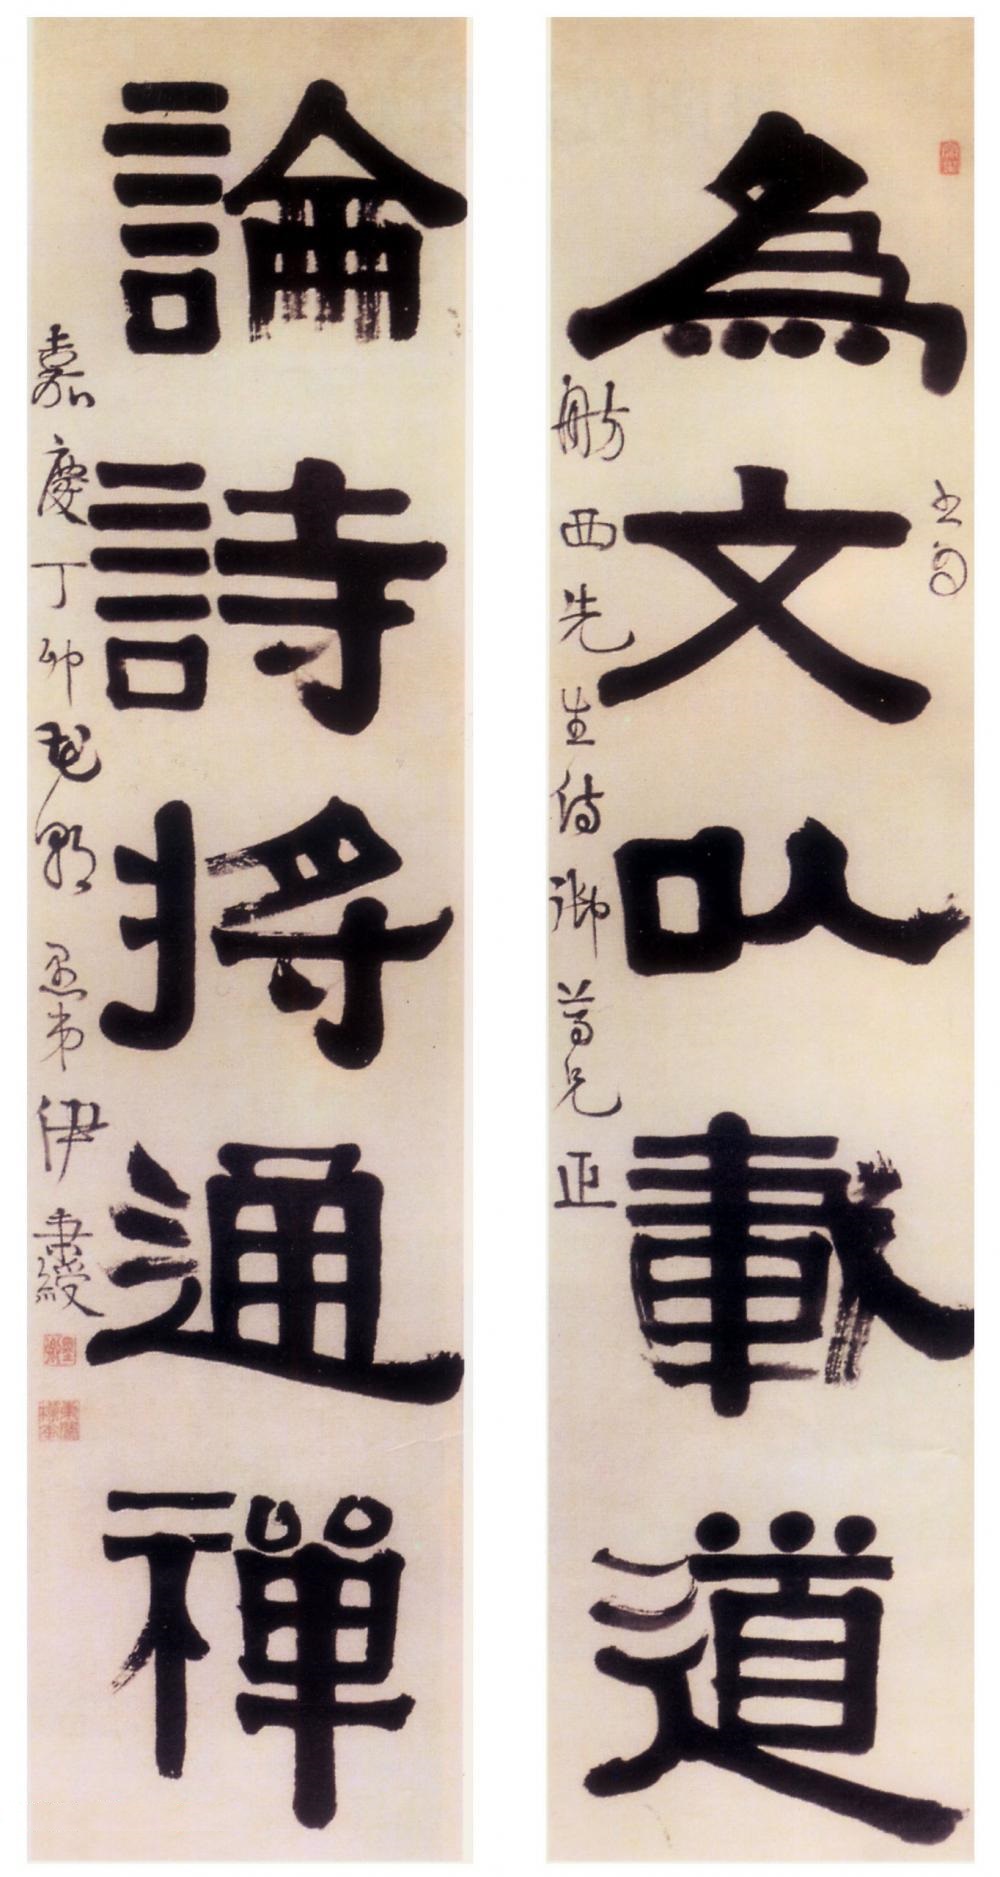 為文以載道
舫西先生侍御尊兄正
論詩將通禪
嘉慶丁卯花朝 愚弟伊秉綬
墨卿